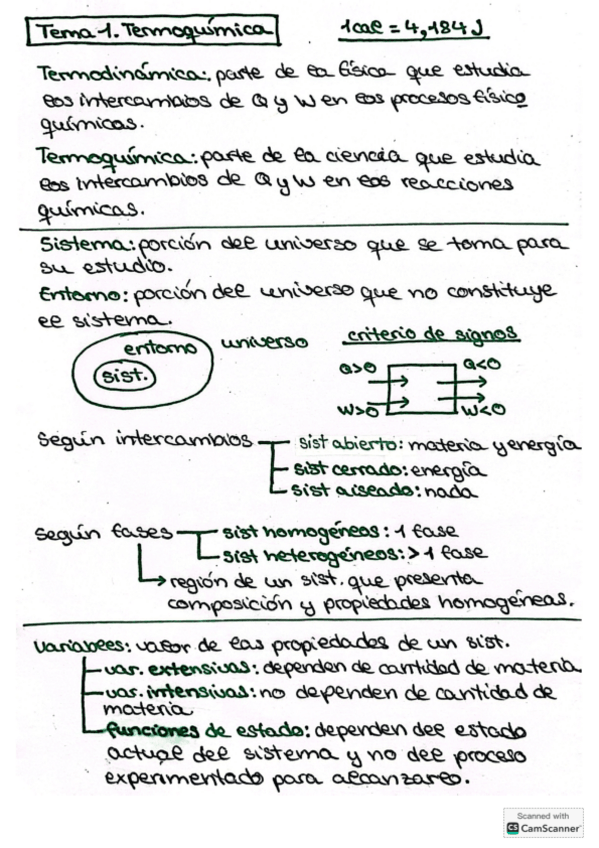 Tema 1. Termoquímica
1cal = 4,184 J
Termodinámica: parte de la física que estudia
los intercambios de Q y W en los procesos físico
químicas.
Termoquímica: parte de la ciencia que estudia
los intercambios de Q y W en las reacciones
químicas.
Sistema: porción del universo que se toma para
su estudio.
Entorno: porción del universo que no constituye
el sistema.
entorno
sist.
universo
criterio de signos
Q>0
Q<0
W>0
W<0
Según intercambios
sist abierto: materia y energía
sist cerrado: energía
sist aislado: nada
Según fases
sist homogéneos: 1 fase
sist heterogéneos: > 1 fase
región de un sist. que presenta
composición y propiedades homogéneas.
Variables: valor de las propiedades de un sist.
var. extensivas: dependen de cantidad de materia
var. intensivas: no dependen de cantidad de
materia
funciones de estado: dependen del estado
actual del sistema y no del proceso
experimentado para alcanzarlo.
Scanned with
CS CamScanner